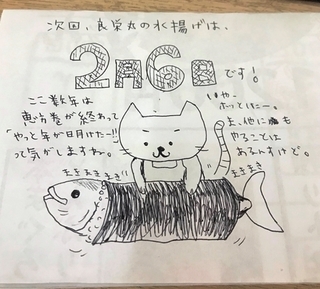 次回、良栄丸の水揚げは、
2月6日です!
ここ数年は
恵方巻が終わって
「やっと年が明けたー!!」
って気がしますねー。
いやー
ホッとしたー。
ま、他にも
やることは
あるんすけど。
まきまきまき
まきまき